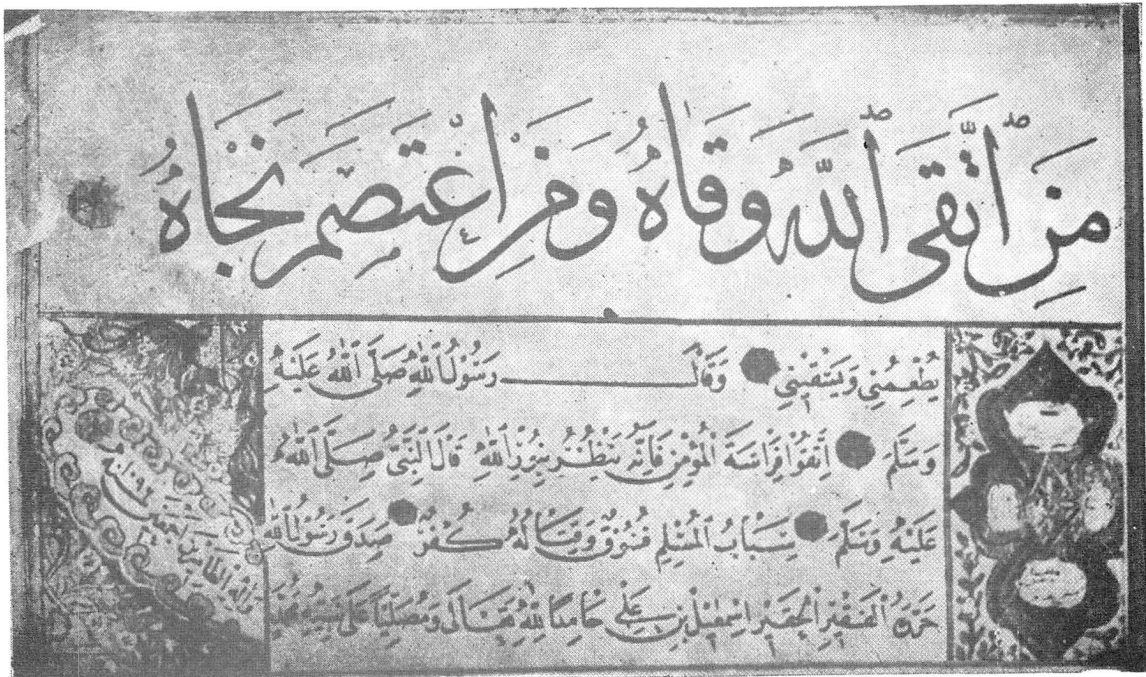 مَنِ ٱتَّقَى ٱللَّهَ وَقَاهُ وَمَنِ اعْتَصَمَ نَجَاهُ
يُطْعِمُنِي وَيَسْقِينِي وَقَالَ رَسُولُ اللهِ صَلَّى اللهُ عَلَيْهِ
وَسَلَّمَ اِتَّقُوا فِرَاسَةَ الْمُؤْمِنِ فَإِنَّهُ يَنْظُرُ بِنُورِ اللهِ قَالَ النَّبِيُّ صَلَّى اللهُ
عَلَيْهِ وَسَلَّمَ سِبَابُ الْمُسْلِمِ فُسُوقٌ وَقِتَالُهُ كُفْرٌ صَدَقَ رَسُولُ اللهِ
حَرَّرَهُ الْفَقِيرُ الْحَقِيرُ اِسْمٰعِيلُ بْنُ عَلِي حَامِدًا لِلّٰهِ تَعَالَى وَمُصَلِّيًا عَلَى نَبِيِّهِ
وَآلِهِ الطَّاهِرِينَ